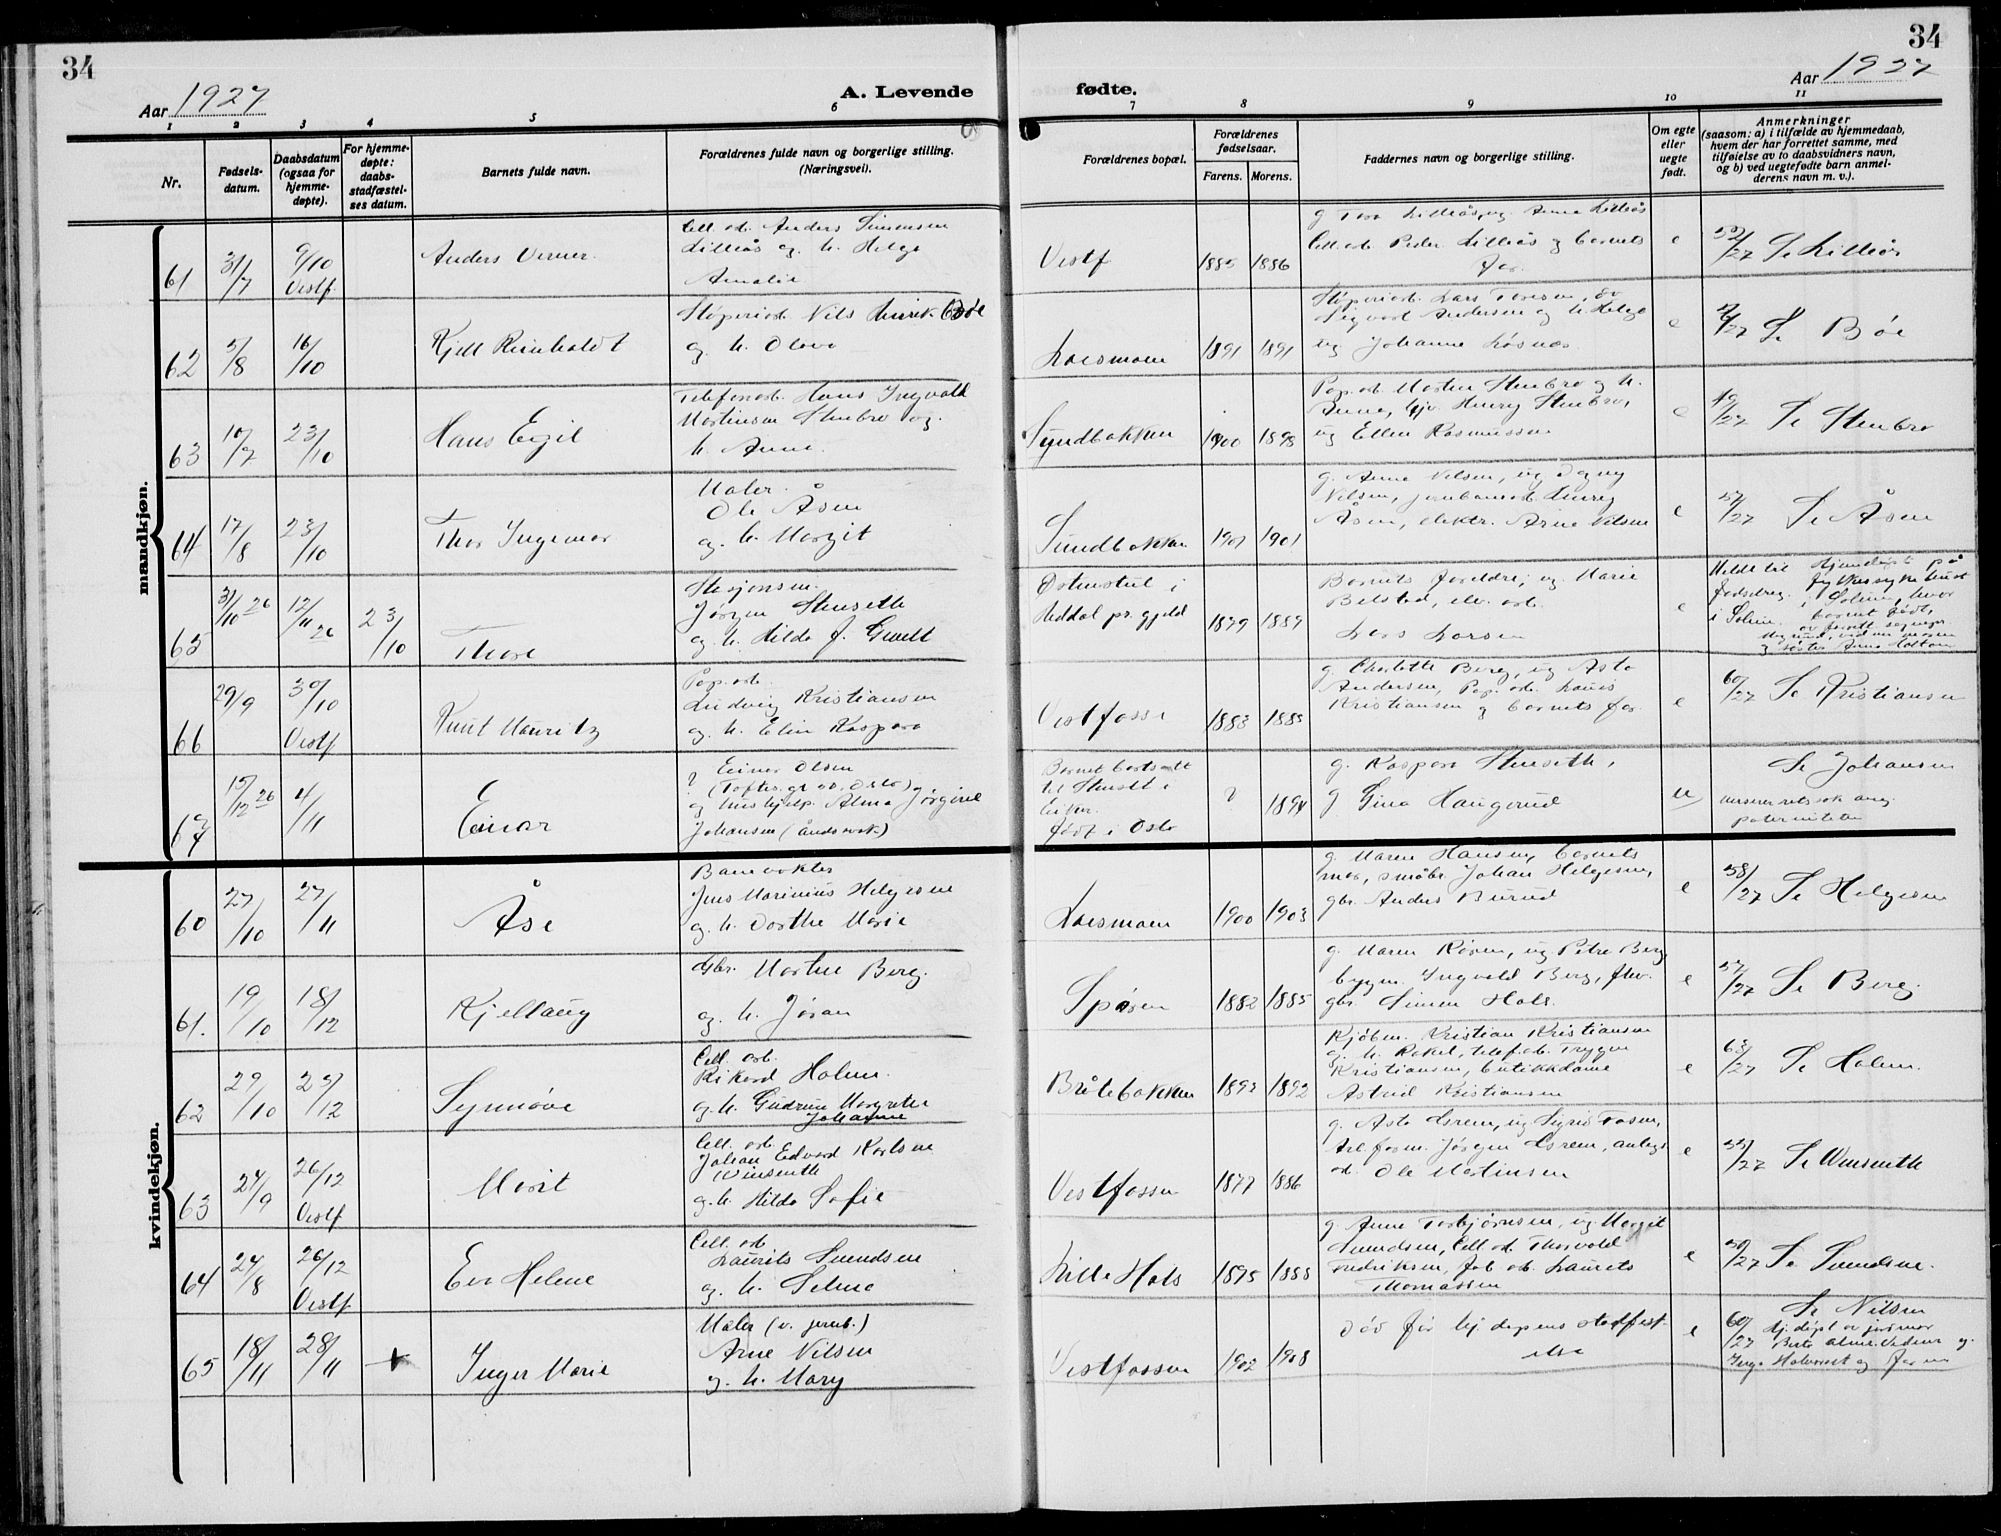 34
34
Aar 1927
A. Levende
fødte.
Aar 1927
1 2 3 4 5 6 7 8 9 10 11
Nr.
Fødsels-
datum.
Daabsdatum
(ogsaa for
hjemme-
døpte).
For hjemme-
døpte:
daabs-
stadfæstel-
ses datum.
Barnets fulde navn.
Forældrenes fulde navn og borgerlige stilling.
(Næringsvei).
Forældrenes bopæl.
Forældrenes
fødselsaar.
Farens. Morens.
Faddernes navn og borgerlige stilling.
Om egte
eller
uegte
født.
Anmerkninger
(saasom: a) i tilfælde av hjemmedaab,
hvem der har forrettet samme, med
tilføielse av to daabsvidners navn,
og b) ved uegtefødte barn anmel-
derens navn m. v.).
mandkjøn.
61
31/7
9/10
Vestf.
Anders Verner.
Cell. arb. Anders Simensen
Lilleås og h. Helga
Amalie
Vestf
1885 1886
g. Thea Lilleås, ug. Anna Lilleås
Cell. arb. Peder Lilleås og barnets
far.
e
52/27 Se Lilleås
62
5/8
16/10
Kjell Reinholdt
Støperiarb. Nils Henrik Bøe
og h. Olava
Loesmoen
1891 1891
Støperiarb. Lars Toresen,
Sigvart Andersen og h. Helga
ug Johanne Løsnæs
e
Se Bøe
63
10/7
23/10
Hans Egil
Telefonarb. Hans Ingvald
Martinsen Stenbro og
h. Anna.
Sundbakken
1900 1898
Pap. arb. Morten Stenbro og h.
Anna, Henry Stenbro,
ug Ellen Rasmussen
e
49/27 Se Stenbro
64
17/8
23/10
Thor Ingemar
Maler.
Ole Åsen
og h. Margit
Sundbakken
1901 1901
g. Anna Nilsen, ug Dagny
Nilsen, jernbanearb. Henry
Åsen, elektr. Arne Nilsen
e
57/27 Se Åsen
65
31/10 26
12/11 26
23/10
Thore
Stasjonsm.
Jørgen Stenseth
og h. Hilda J.
Østenstul i
Heddal pr. gjeld
1879 1889
Barnets foreldre; ug. Marie
Belstad, elv. arb.
Lars Larsen
e
Meldt til
fødselreg.
i Solum.
Hjemdøpt på
Fylkessykehuset
i Solum, hvor
barnet født,
66
29/9
30/10
Vestf
Knut Mauritz
Pap. arb.
Ludvig Kristiansen
og h. Elin Kaspara
Vestfossen
1883 1885
g. Charlotte Berg, ug Asta
Andersen, Pap. arb. Louis
Kristiansen og barnets far.
e
60/27 Se Kristiansen
67
15/12 26
4/11
Einar
? Einar Olsen
(Toftes gt. Oslo)
og hushjelp. Alma Jørgine
Johansen (åndssvak)
Barnet bortsatt
til Stensett i
Eiker.
født i Oslo
? 1894
g. Kaspara Stenseth,
g Gina Haugerud
u
Se Johansen
paterniteten
kvindekjøn.
60
27/10
27/11
Åse
Banevokter
Jens Marinius Helgesen
og h. Dorthe Marie
Loesmoen
1900 1903
g. Maren Hansen, barnets
mor, småbr. Johan Helgesen,
gbr. Anders Burud
e
58/27 Se Helgesen
61.
19/10
18/12
Kjellaug
Gbr. Morten Berg.
og h. Jøran
Spåren
1882 1885
g. Maren Røren, ug Petra Berg
bygm. Ingvald Berg, fhv.
gbr. Simen Hals.
e
57/27 Se Berg.
62
29/10
25/12
Synnøve
Cell. arb.
Rikard Holm.
og h. Gudrun Margrethe
Johanne
Bråtebakken
1892 1892
Kjøbm. Kristian Kristiansen
og h. Rakel, telef. arb. Trygve
Kristiansen, butikkdame
Astrid Kristiansen
e
63/27 Se Holm.
63
24/9
26/12
Vestf
Marit
Cell. arb.
Johan Edvard Karlsen
Winsenth
og h. Hilda Sofie
Vestfossen
1877 1886
Jørgen anlegs
arb. Ole Martinsen
e
55/27 Se Winsenth
64
24/8
26/12
Vestf
Eva Helene
Cell. arb.
Laurits Svendsen
og h. Selma
Lille Hals
1895 1888
g. Anna Torbjørnsen, ug. Margit
Svendsen, Cell. arb. Thorvald
Fredriksen, Fab. arb. Laurits
Thomassen
e
50/27 Se Svendsen.
65
18/11
28/11
+
Inger Marie
Maler (v. jernb.)
Arne Nilsen
og h. Mary
Vestfossen
1902 1908
Død før hj. dåpens stadfest-
else
e
60/27
Se Nilsen
Hj. døpt av jordmor